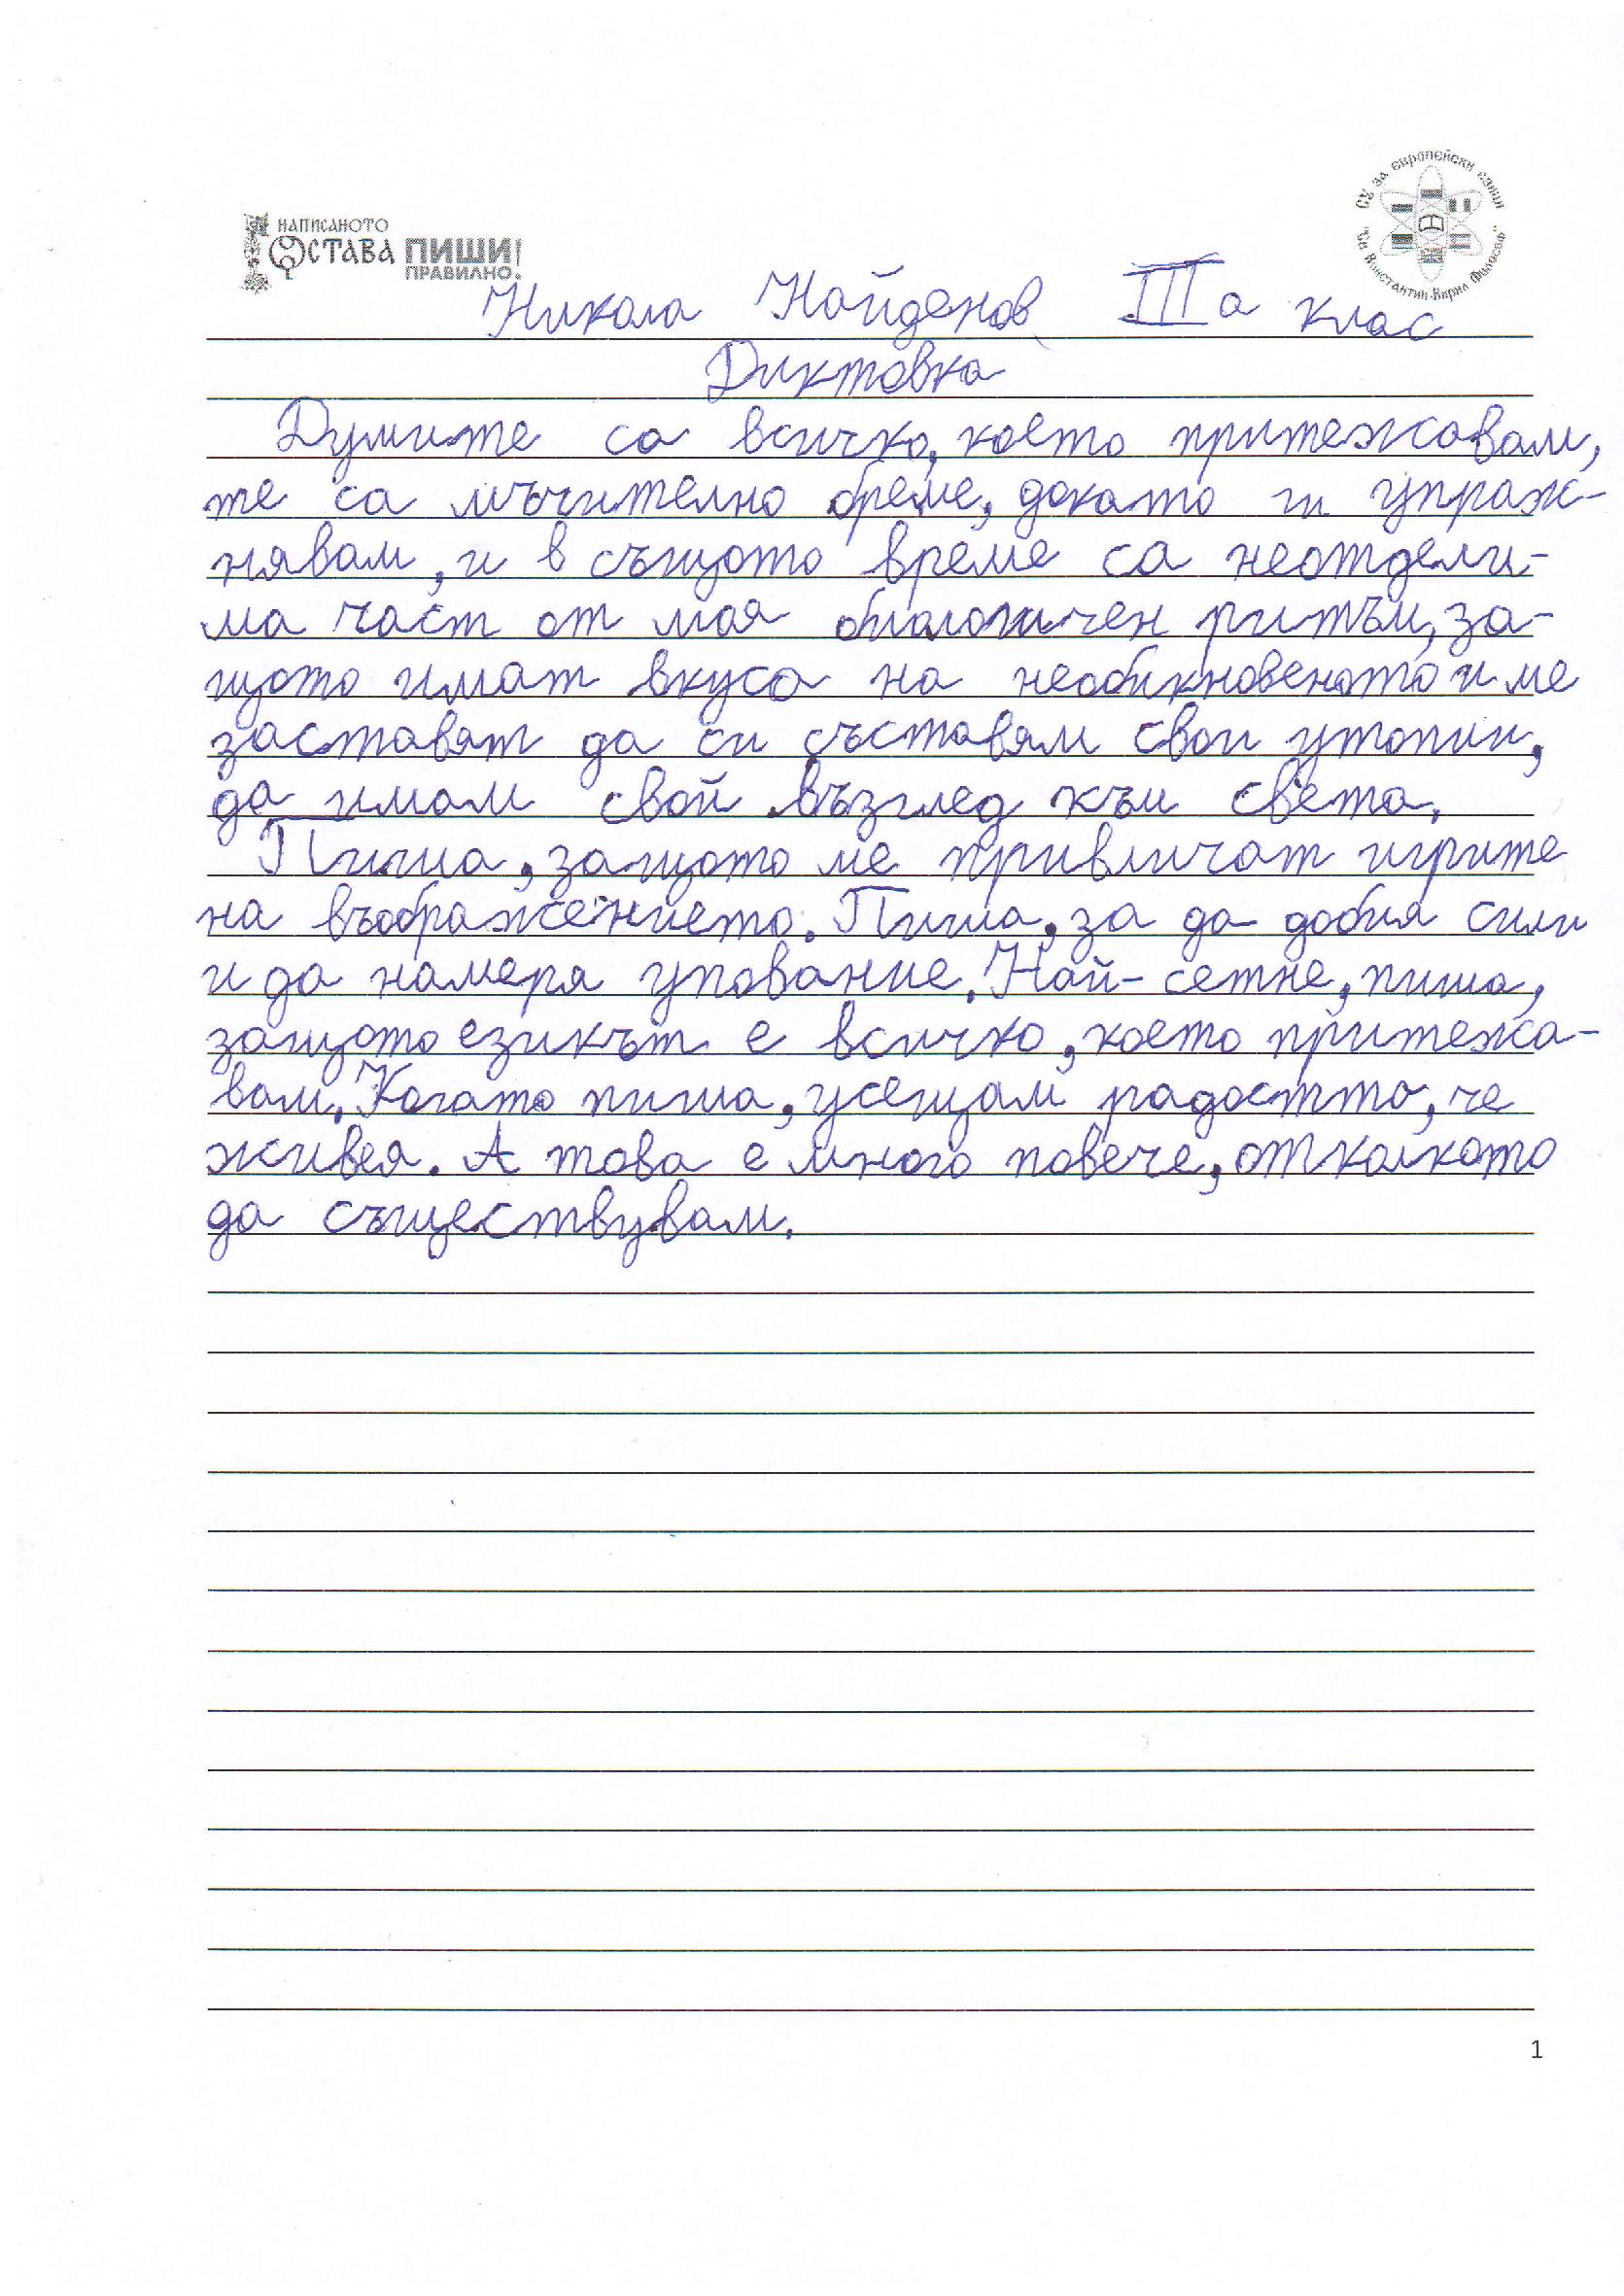 НАПИСАНОТО
ОСТАВА ПИШИ
ПРАВИЛНО!
СУ за европейски езици
"Св. Константин-Кирил Философ"
Никола Найденов IIIа клас
Диктовка
Думите са всичко, което притежавам,
те са мъчително бреме, докато ги упраж-
нявам, и в същото време са неотдели-
ма част от моя биологичен ритъм, за-
щото имат вкуса на необикновеното и ме
заставят да си съставям свои утопии,
да имам свой възглед към света.
Пиша, защото ме привличат игрите
на въображението. Пиша, за да добия сили
и да намеря упование. Най-сетне, пиша,
защото езикът е всичко, което притежа-
вам. Когато пиша, усещам радостта, че
живея. А това е много повече, отколкото
да съществувам.
1